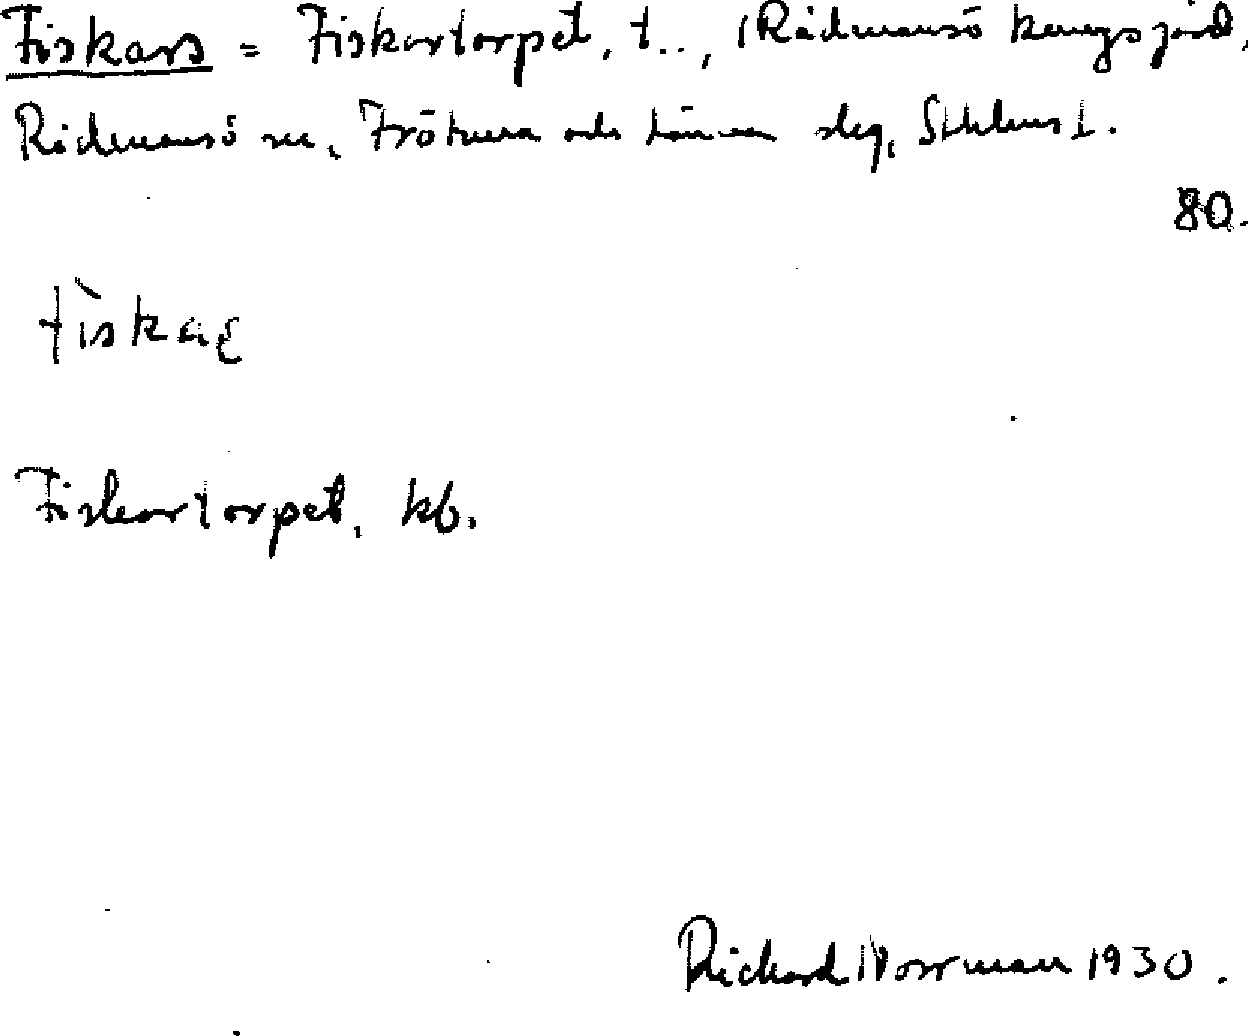 Fiskars = Fiskartorpet, t.., (Rådmansö kungsgård,
Rådmansö sn, Frötuna och länna slg, Sthlms l.
80.
Fiskartorpet, kb.
Richard Norrman 1930.